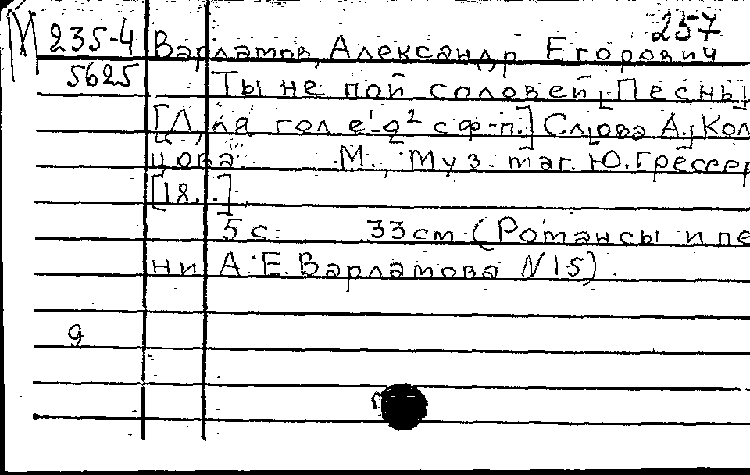 257
М 235-4 Варламов, Александр Егорович
5625 Ты не пой соловей. [Песнь]
[Для гол. e¹-g² с ф-п.] Слова А. Коль
цова М., Муз. маг. Ю. Грессер
[18..]
5 с. 33 см (Романсы и пе
ни А. Е. Варламова N 15).
g